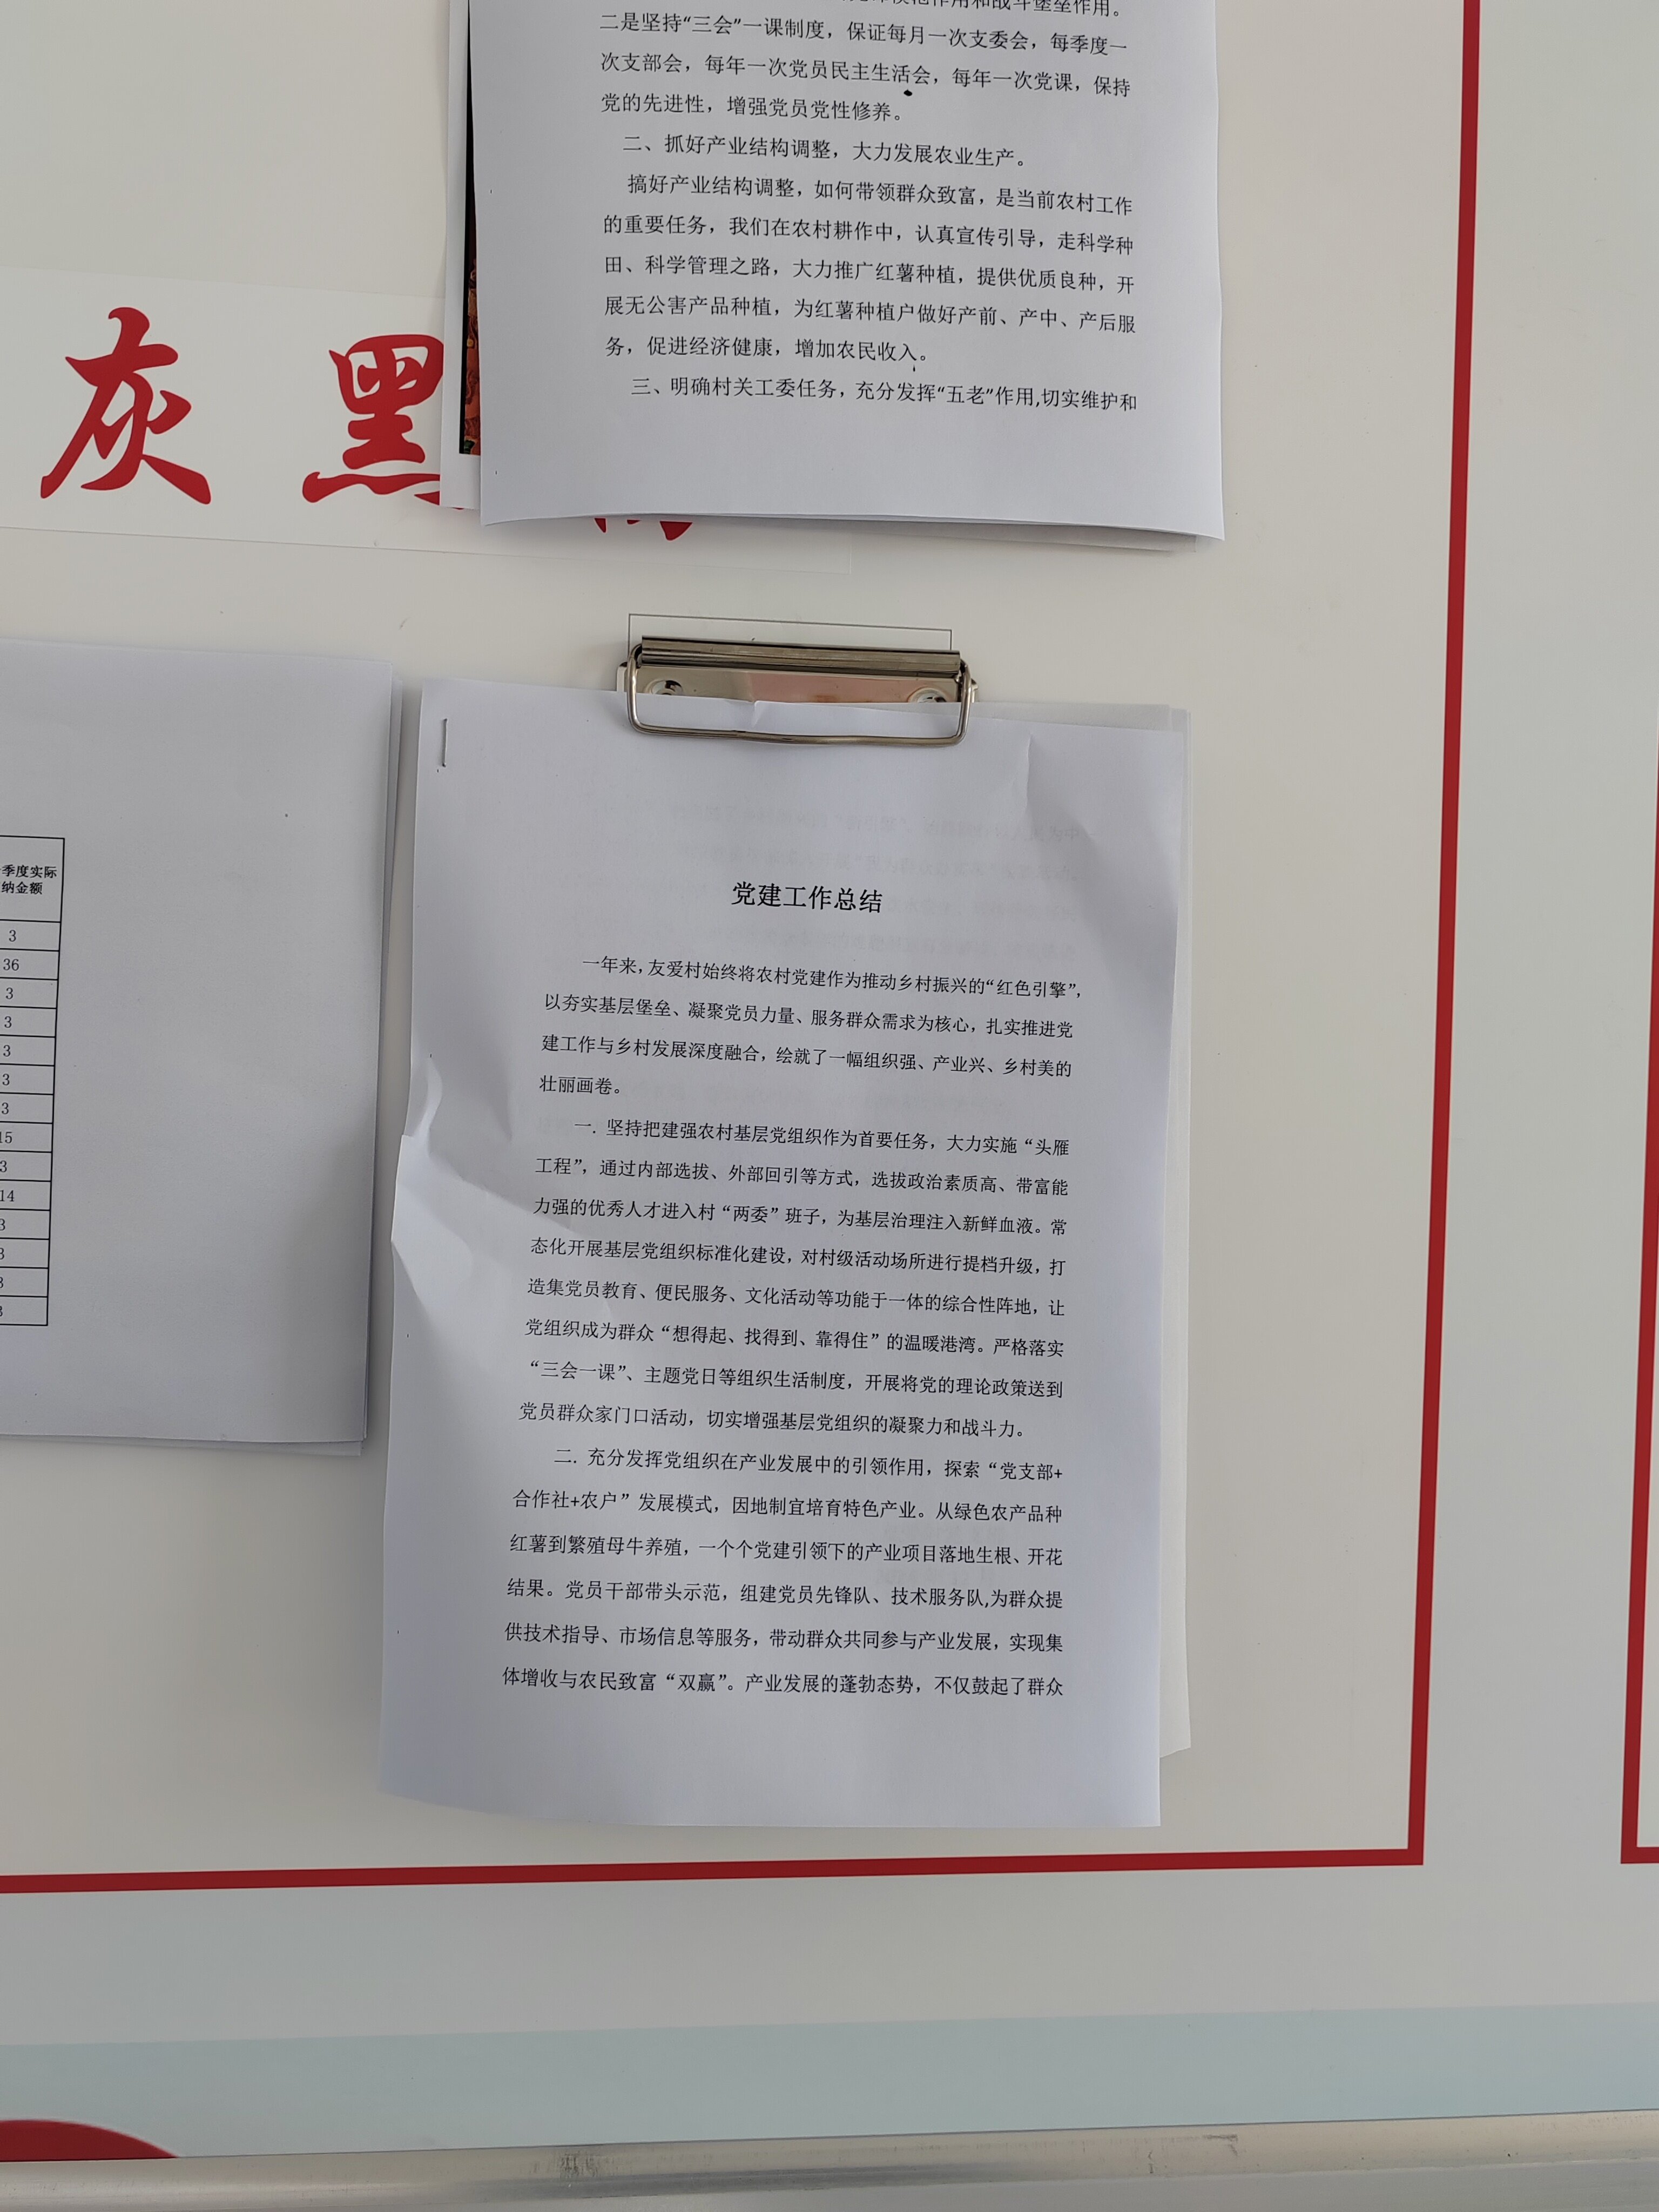 作用和战斗堡垒作用。
二是坚持“三会”一课制度，保证每月一次支委会，每季度一
次支部会，每年一次党员民主生活会，每年一次党课，保持
党的先进性，增强党员党性修养。
二、抓好产业结构调整，大力发展农业生产。
搞好产业结构调整，如何带领群众致富，是当前农村工作
的重要任务，我们在农村耕作中，认真宣传引导，走科学种
田、科学管理之路，大力推广红薯种植，提供优质良种，开
展无公害产品种植，为红薯种植户做好产前、产中、产后服
务，促进经济健康，增加农民收入。
三、明确村关工委任务，充分发挥“五老”作用,切实维护和
灰 黑
季度实际
纳金额
3
36
3
3
3
3
3
15
3
14
3
3
3
3
党建工作总结
一年来，友爱村始终将农村党建作为推动乡村振兴的“红色引擎”，
以夯实基层堡垒、凝聚党员力量、服务群众需求为核心，扎实推进党
建工作与乡村发展深度融合，绘就了一幅组织强、产业兴、乡村美的
壮丽画卷。
一. 坚持把建强农村基层党组织作为首要任务，大力实施“头雁
工程”，通过内部选拔、外部回引等方式，选拔政治素质高、带富能
力强的优秀人才进入村“两委”班子，为基层治理注入新鲜血液。常
态化开展基层党组织标准化建设，对村级活动场所进行提档升级，打
造集党员教育、便民服务、文化活动等功能于一体的综合性阵地，让
党组织成为群众“想得起、找得到、靠得住”的温暖港湾。严格落实
“三会一课”、主题党日等组织生活制度，开展将党的理论政策送到
党员群众家门口活动，切实增强基层党组织的凝聚力和战斗力。
二. 充分发挥党组织在产业发展中的引领作用，探索“党支部+
合作社+农户”发展模式，因地制宜培育特色产业。从绿色农产品种
红薯到繁殖母牛养殖，一个个党建引领下的产业项目落地生根、开花
结果。党员干部带头示范，组建党员先锋队、技术服务队,为群众提
供技术指导、市场信息等服务，带动群众共同参与产业发展，实现集
体增收与农民致富“双赢”。产业发展的蓬勃态势，不仅鼓起了群众